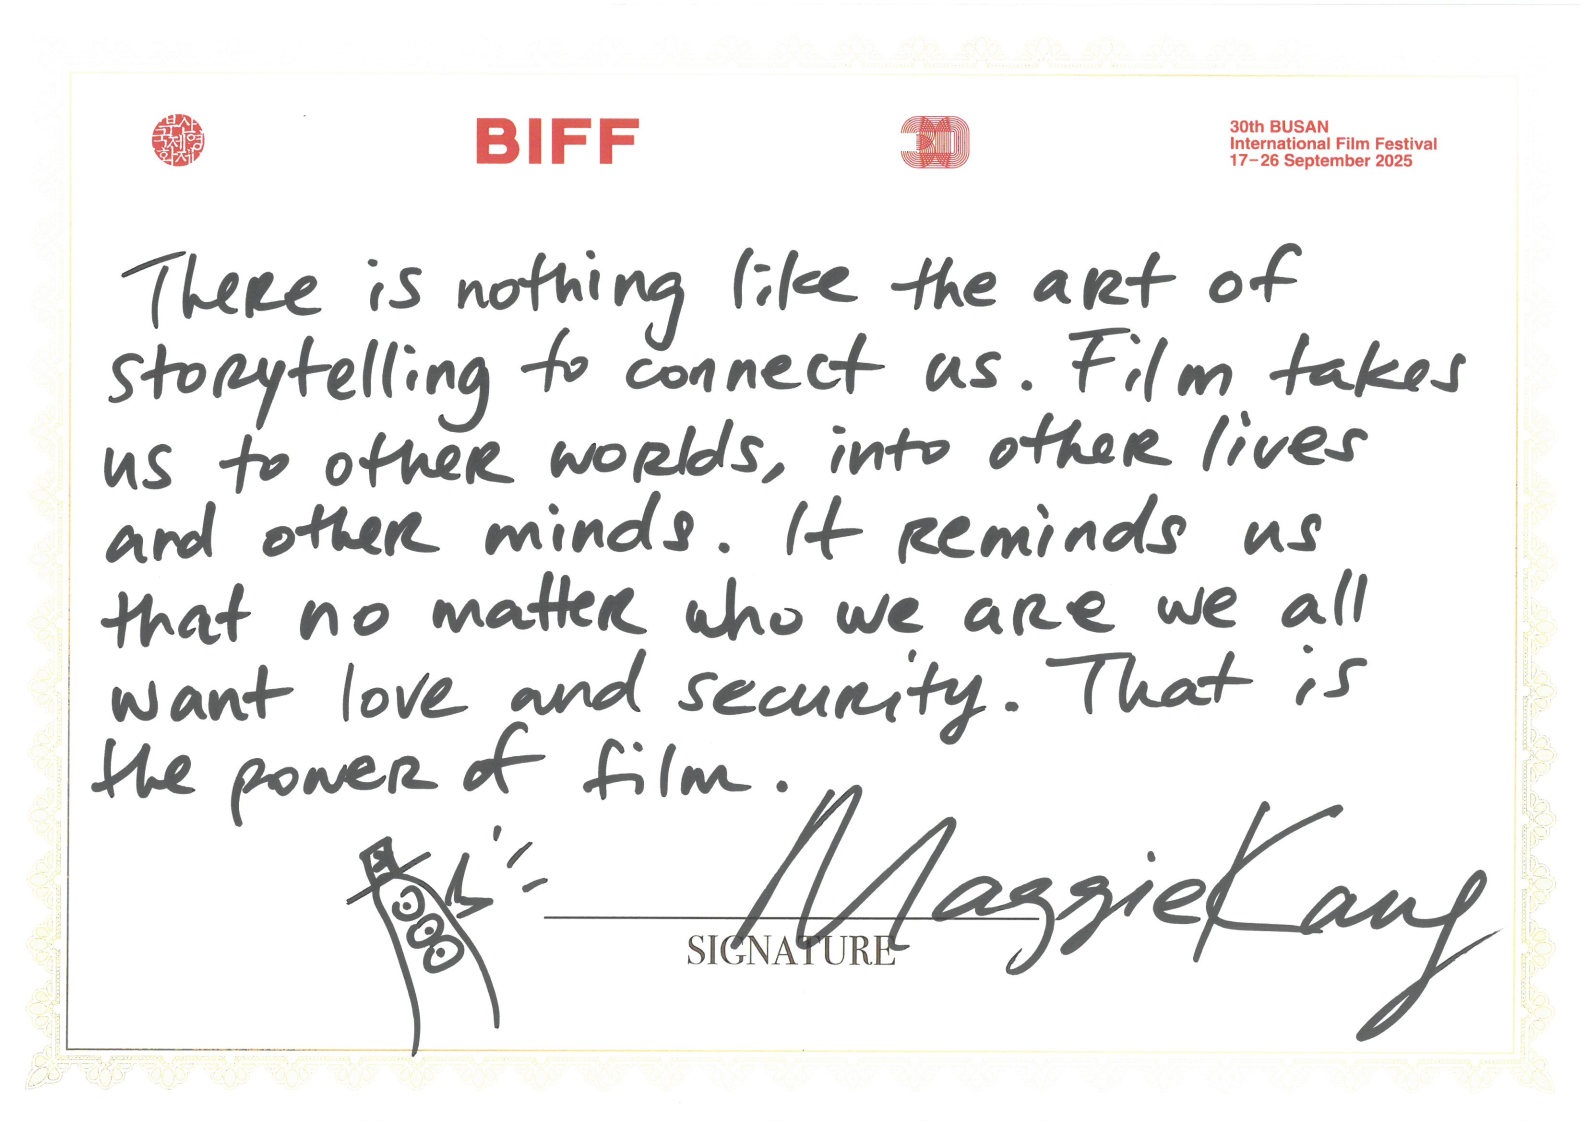 부산
국제영
화제
BIFF
30th BUSAN
International Film Festival
17–26 September 2025
There is nothing like the art of
storytelling to connect us. Film takes
us to other worlds, into other lives
and other minds. It reminds us
that no matter who we are we all
want love and security. That is
the power of film.
Maggie Kang
SIGNATURE